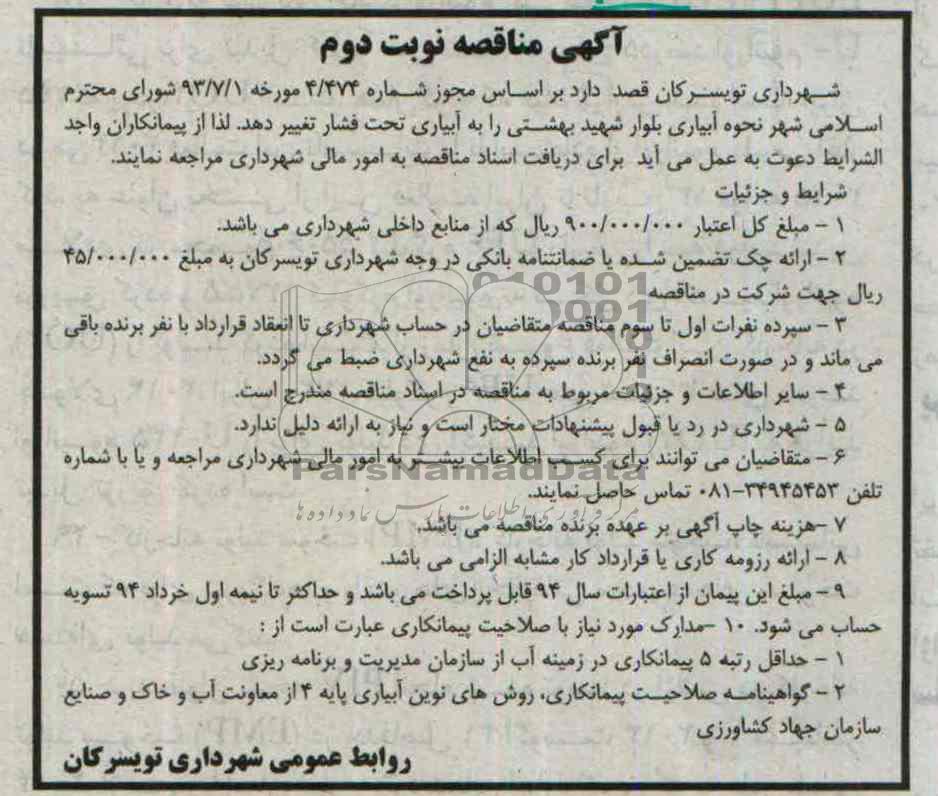 آگهی مناقصه نوبت دوم
شهرداری تویسرکان قصد دارد بر اساس مجوز شماره ۴/۴۷۴ مورخه ۹۳/۷/۱ شورای محترم
اسلامی شهر نحوه آبیاری بلوار شهید بهشتی را به آبیاری تحت فشار تغییر دهد. لذا از پیمانکاران واجد
الشرایط دعوت به عمل می آید برای دریافت اسناد مناقصه به امور مالی شهرداری مراجعه نمایند.
شرایط و جزئیات
۱ - مبلغ کل اعتبار ۹۰۰/۰۰۰/۰۰۰ ریال که از منابع داخلی شهرداری می باشد.
۲ - ارائه چک تضمین شده یا ضمانتنامه بانکی در وجه شهرداری تویسرکان به مبلغ ۴۵/۰۰۰/۰۰۰
ریال جهت شرکت در مناقصه
۳ - سپرده نفرات اول تا سوم مناقصه متقاضیان در حساب شهرداری تا انعقاد قرارداد با نفر برنده باقی
می ماند و در صورت انصراف نفر برنده سپرده به نفع شهرداری ضبط می گردد.
۴ - سایر اطلاعات و جزئیات مربوط به مناقصه در اسناد مناقصه مندرج است.
۵ - شهرداری در رد یا قبول پیشنهادات مختار است و نیاز به ارائه دلیل ندارد.
۶ - متقاضیان می توانند برای کسب اطلاعات بیشتر به امور مالی شهرداری مراجعه و یا با شماره
تلفن ۳۴۹۴۵۴۵۳-۰۸۱ تماس حاصل نمایند.
۷ -هزینه چاپ آگهی بر عهده برنده مناقصه می باشد.
۸ - ارائه رزومه کاری یا قرارداد کار مشابه الزامی می باشد.
۹ - مبلغ این پیمان از اعتبارات سال ۹۴ قابل پرداخت می باشد و حداکثر تا نیمه اول خرداد ۹۴ تسویه
حساب می شود. ۱۰ -مدارک مورد نیاز با صلاحیت پیمانکاری عبارت است از :
۱ - حداقل رتبه ۵ پیمانکاری در زمینه آب از سازمان مدیریت و برنامه ریزی
۲ - گواهینامه صلاحیت پیمانکاری، روش های نوین آبیاری پایه ۴ از معاونت آب و خاک و صنایع
سازمان جهاد کشاورزی
روابط عمومی شهرداری تویسرکان
ParsNamadData
مرکز فرآوری اطلاعات پارس نماد داده ها